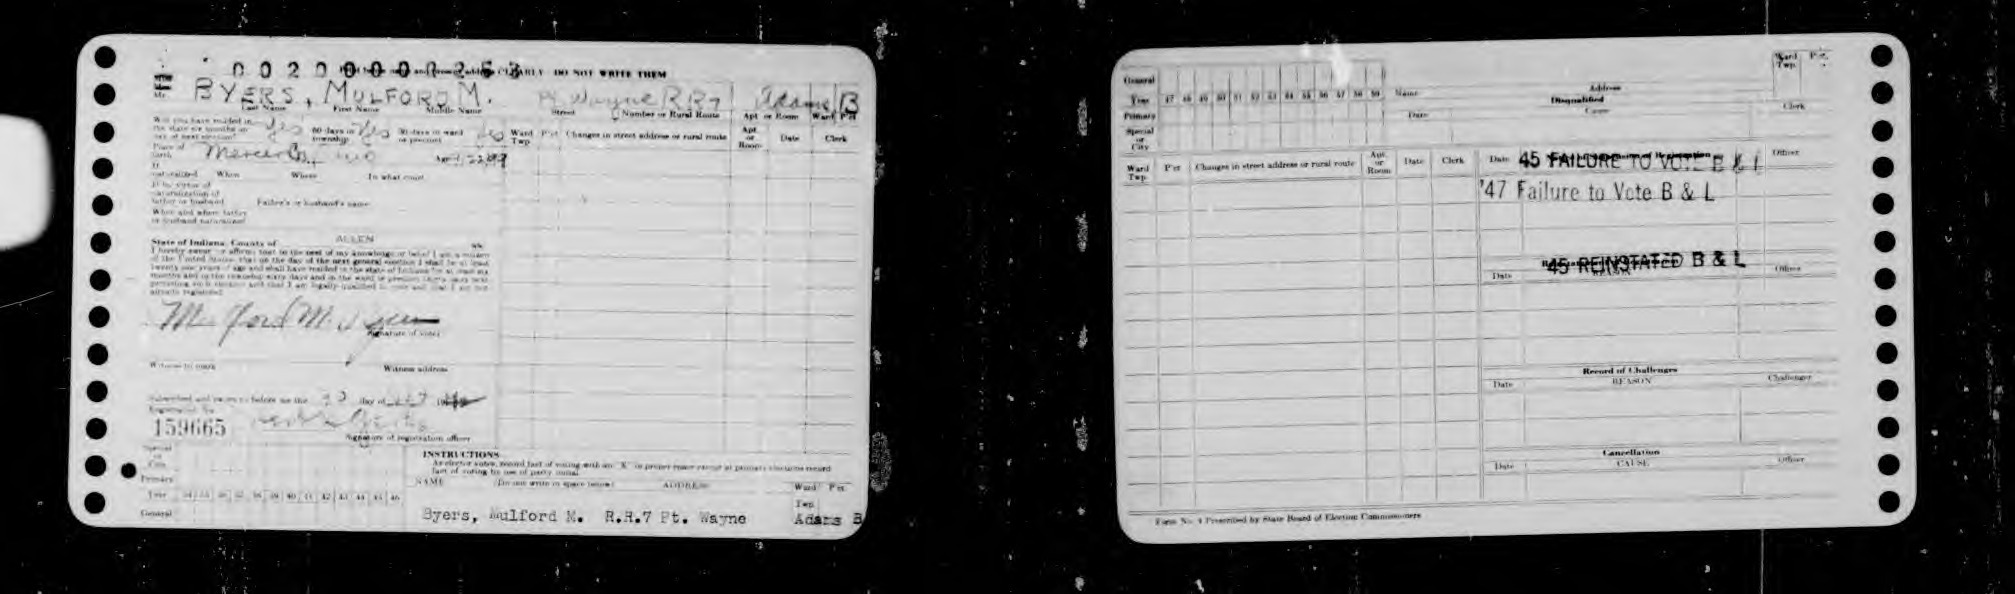 0020000253
CLEARLY DO NOT WRITE THEM
Mr. BYERS, MULFORD M. Ft Wayne RR7 Adams B
Last Name First Name Middle Name Street Number or Rural Route Apt or Room Ward Pct
Will you have resided in
the state six months on Yes 60 days in Yes 30 days in ward Yes
day of next election? township or precinct
Ward Twp Pct Changes in street address or rural route Apt or Room Date Clerk
Place of birth Mercer Co. Age
If naturalized When Where In what court
If by virtue of
naturalization of
father or husband Father's or husband's name
When and where father
or husband naturalized
State of Indiana, County of ALLEN ss.
I hereby swear or affirm that to the best of my knowledge or belief I am a citizen
of the United States, that on the day of the next general election I shall be at least
twenty one years of age and shall have resided in the state of Indiana for at least six
months and in the township sixty days and in the ward or precinct thirty days next
preceding such election and that I am legally qualified to vote and that I am not
already registered.
Mulford M. Byers
Signature of voter
Witness to mark Witness address
Subscribed and sworn to before me this day of
Registration No.
159665
Signature of registration officer
Special or City
INSTRUCTIONS
As elector votes, record fact of voting with an "X" in proper space except at primary elections record
fact of voting by use of party initial.
Primary NAME (Do not write in space below) ADDRESS Ward Twp Pct
Year 34 35 36 37 38 39 40 41 42 43 44 45 46
General Byers, Mulford M. R.R.7 Ft. Wayne Adams B
General Ward Twp. Pct.
Year 47 48 49 50 51 52 53 54 55 56 57 58 59 Name Address
Primary Disqualified
Date Cause Clerk
Special or City
Ward Twp. Pct Changes in street address or rural route Apt. or Room Date Clerk Date 45 FAILURE TO VOTE B & L Officer
'47 Failure to Vote B & L
45 REINSTATED B & L
Date REASON Officer
Record of Challenges
Date REASON Challenger
Cancellation
Date CAUSE Officer
Form No. 4 Prescribed by State Board of Election Commissioners